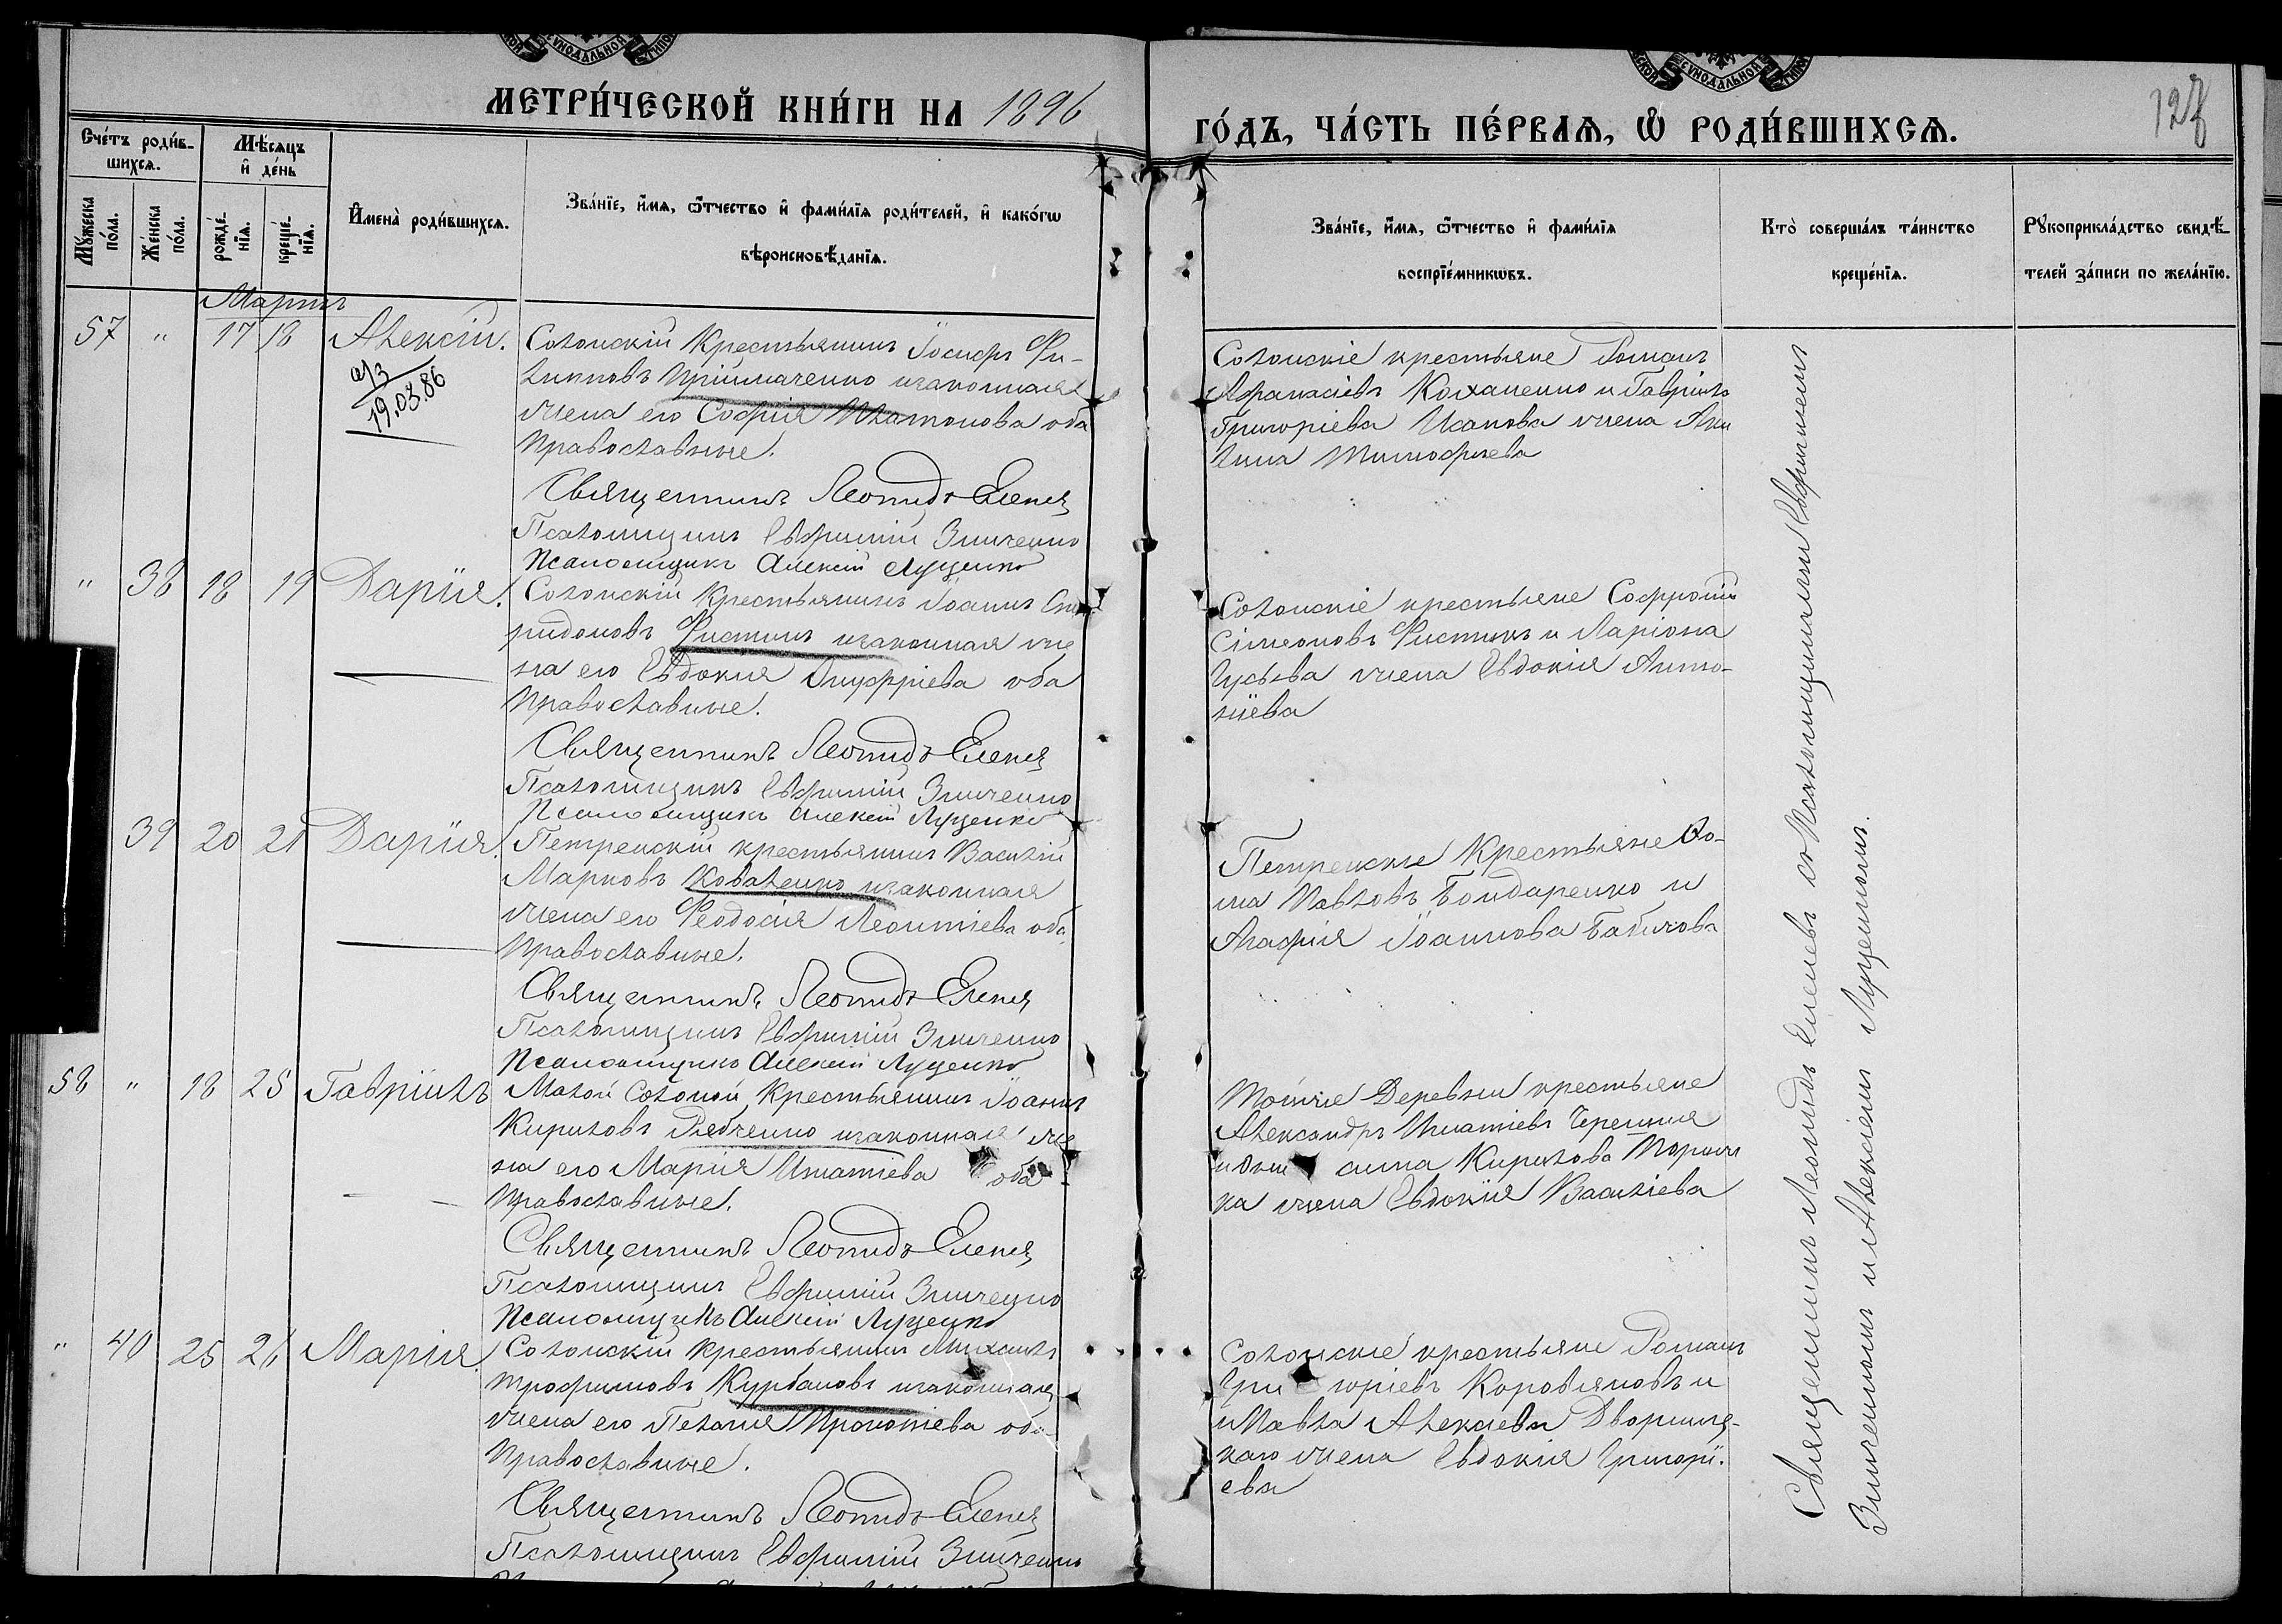 МЕТРИ́ЧЕСКОЙ КНИ́ГИ НА 1896
ГО́ДЪ, ЧА́СТЬ ПЕ́РВАЯ, Ѡ҆ РОДИ́ВШИХСЯ.
Сче́тъ роди́в-
шихся.
Мѣ́сяцъ
и҆ де́нь
Мꙋ́жеска
по́ла.
Же́нска
по́ла.
рожде́-
нїя.
креще́-
нїя.
И҆мена̀ роди́вшихся.
Зва́нїе, и҆́мя, ѻ҆́тчество и҆ фами́лїя роди́телей, и҆ како́гѡ
вѣроисповѣ́данїя.
Зва́нїе, и҆́мя, ѻ҆́тчество и҆ фами́лїя
воспрїе́мникѡвъ.
Кто̀ соверша́лъ та́инство
креще́нїя.
Рꙋкоприкла́дство свидѣ́-
телей за́писи по жела́нїю.
Мартъ
57 " 17 18 Алексій.
а/з
19.03.86
Солонскій Крестьянинъ Іосифъ Фи-
липповъ Пріймаченко и законная
жена его Софія Платонова оба
Православные.
Священникъ Леонидъ Еленев
Псаломщикъ Евфимій Зинченко
Псаломщикъ Алексій Луценко
Солонскіе крестьяне Романъ
Афанасіевъ Коханенко и Гавріила
Григоріева Исакова жена
Тимофеева
" 38 18 19 Дарія.
Солонскій Крестьянинъ Іоаннъ Спи
ридоновъ Фистинъ и законная же
на его Евдокія Онуфріева оба
Православные.
Священникъ Леонидъ Еленев
Псаломщикъ Евфимій Зинченко
Псаломщикъ Алексій Луценко
Солонскіе крестьяне Софроній
Сімеоновъ Фистинъ и Ларіона
Гусьева жена Евдокія Анто-
ніева
39 20 21 Дарія.
Петренскій крестьянинъ Василій
Марковъ Коваленко и законная
жена его Феодосія Леонтіева оба
Православные.
Священникъ Леонидъ Еленев
Псаломщикъ Евфимій Зинченко
Псаломщикъ Алексій Луценко
Петренскіе Крестьяне Ѳо-
ма Павловъ Бондаренко и
Агафія Іоаннова Бабичова
58 " 18 25 Гавріилъ
Малой Солоной Крестьянинъ Іоаннъ
Кириловъ Рябченко и законная же
на его Марія Игнатіева оба
Православные.
Священникъ Леонидъ Еленев
Псаломщикъ Евфимій Зинченко
Псаломщикъ Алексій Луценко
Тойже Деревни крестьяне
Александръ Игнатіевъ
Кирилова
ка жена Евдокія Василіева
" 40 25 26 Марія.
Солонскій Крестьянинъ Михаилъ
Трофимовъ Курбановъ и законная
жена его Пелагія Прокопіева оба
Православные.
Священникъ Леонидъ Еленев
Псаломщикъ Евфимій Зинченко
Солонскіе крестьяне Романъ
Григоріевъ Коровяковъ и
Павла Алексіева Дворниц-
каго жена Евдокія Григорі-
ева
Священникъ Леонидъ Еленевъ съ Псаломщиками Евфиміемъ
Зинченкомъ и Алексіемъ Луценкомъ.